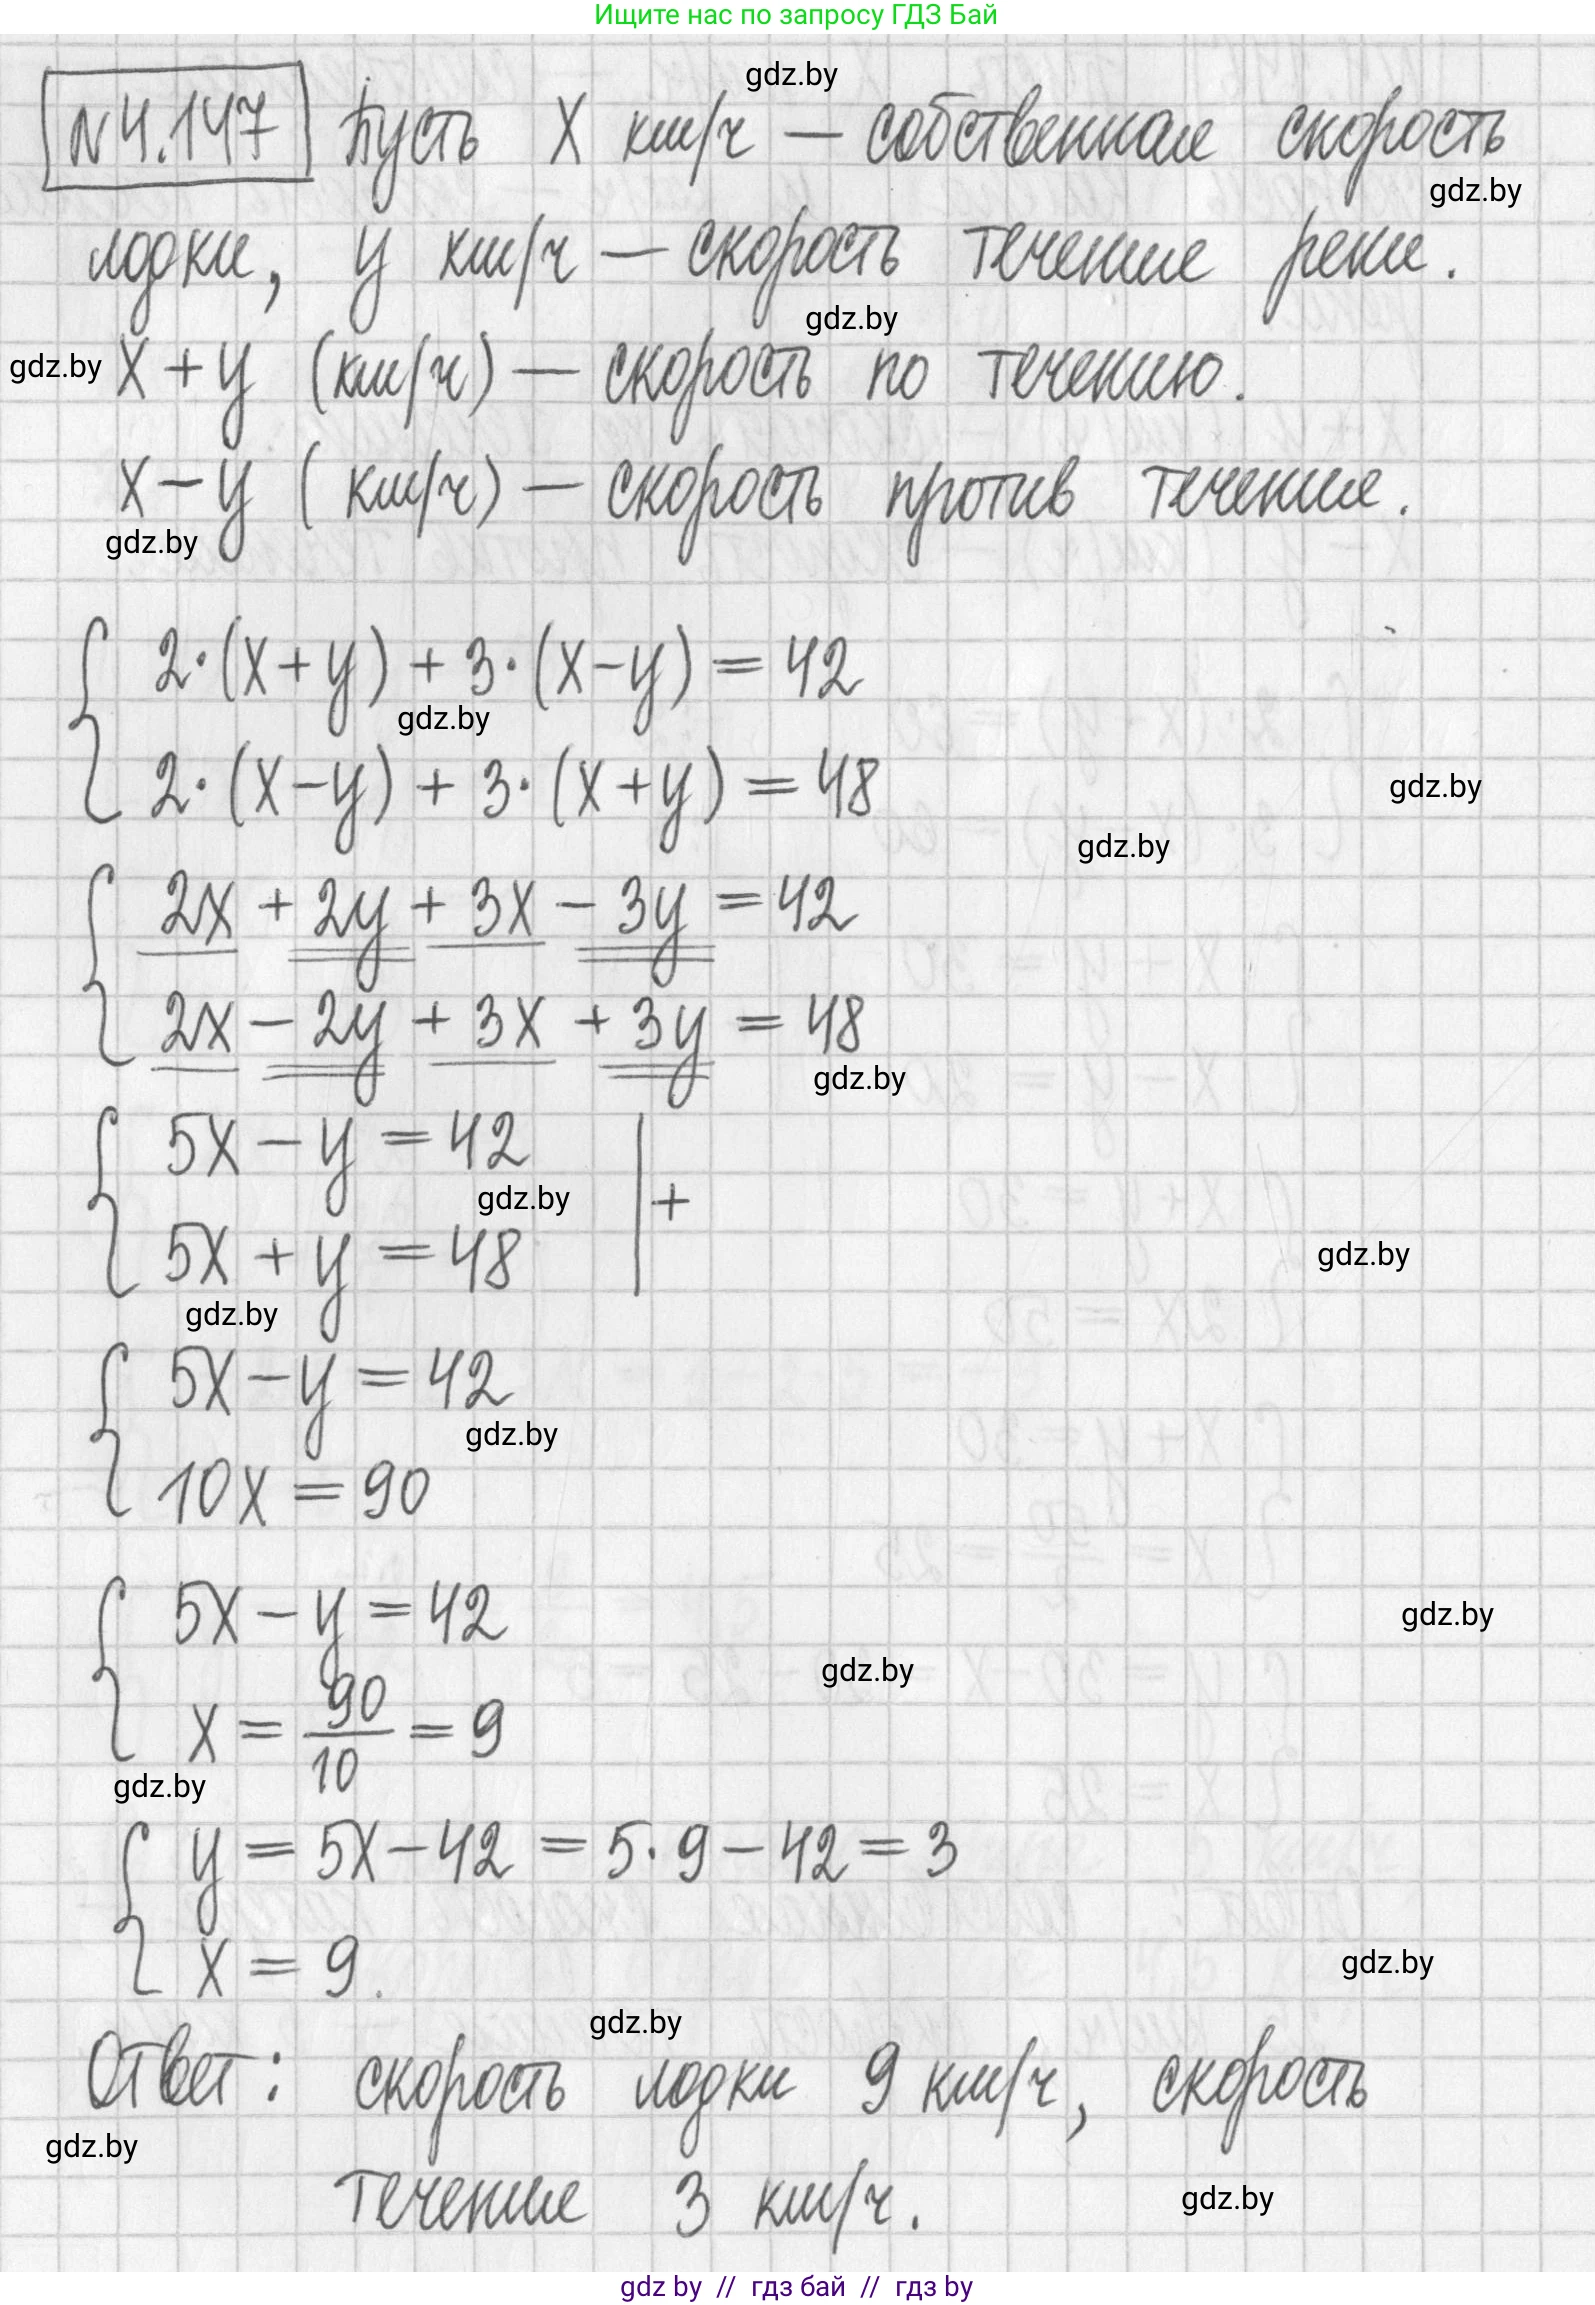 Ищите нас по запросу ГДЗ Бай
gdz.by
N4.147 Пусть x км/ч — собственная скорость
gdz.by
лодки, y км/ч — скорость течения реки.
gdz.by
gdz.by x + y (км/ч) — скорость по течению.
x − y (км/ч) — скорость против течения.
gdz.by
{ 2·(x+y) + 3·(x−y) = 42
gdz.by
2·(x−y) + 3·(x+y) = 48
gdz.by
gdz.by
{ 2x + 2y + 3x − 3y = 42
2x − 2y + 3x + 3y = 48
gdz.by
{ 5x − y = 42 | +
gdz.by
5x + y = 48
gdz.by
gdz.by
{ 5x − y = 42
gdz.by
10x = 90
{ 5x − y = 42
gdz.by
gdz.by
x = 90/10 = 9
gdz.by
{ y = 5x − 42 = 5·9 − 42 = 3
x = 9.
gdz.by
gdz.by
Ответ: скорость лодки 9 км/ч, скорость
gdz.by
течения 3 км/ч.
gdz.by
gdz by // гдз бай // гдз by